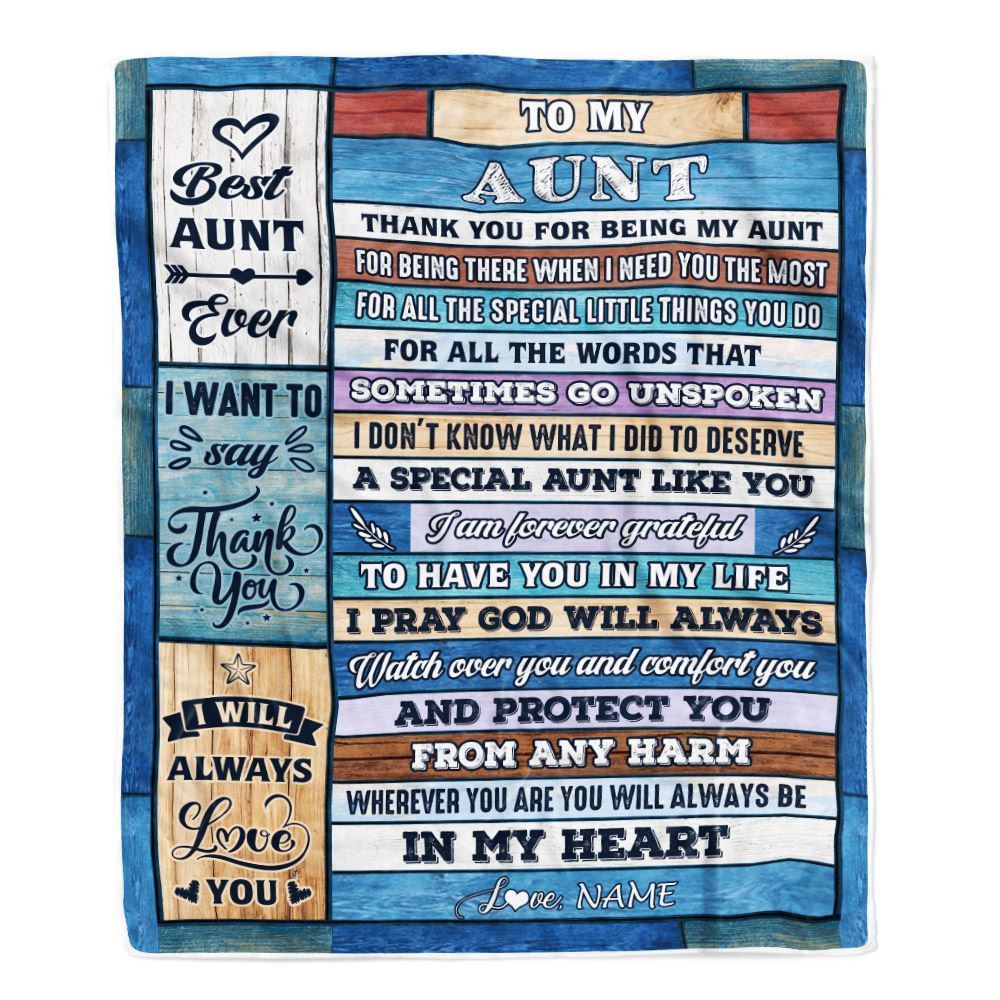 Best
AUNT
Ever
I WANT TO
say
Thank
You
I WILL
ALWAYS
Love
YOU
TO MY
AUNT
THANK YOU FOR BEING MY AUNT
FOR BEING THERE WHEN I NEED YOU THE MOST
FOR ALL THE SPECIAL LITTLE THINGS YOU DO
FOR ALL THE WORDS THAT
SOMETIMES GO UNSPOKEN
I DON'T KNOW WHAT I DID TO DESERVE
A SPECIAL AUNT LIKE YOU
I am forever grateful
TO HAVE YOU IN MY LIFE
I PRAY GOD WILL ALWAYS
Watch over you and comfort you
AND PROTECT YOU
FROM ANY HARM
WHEREVER YOU ARE YOU WILL ALWAYS BE
IN MY HEART
Love, NAME